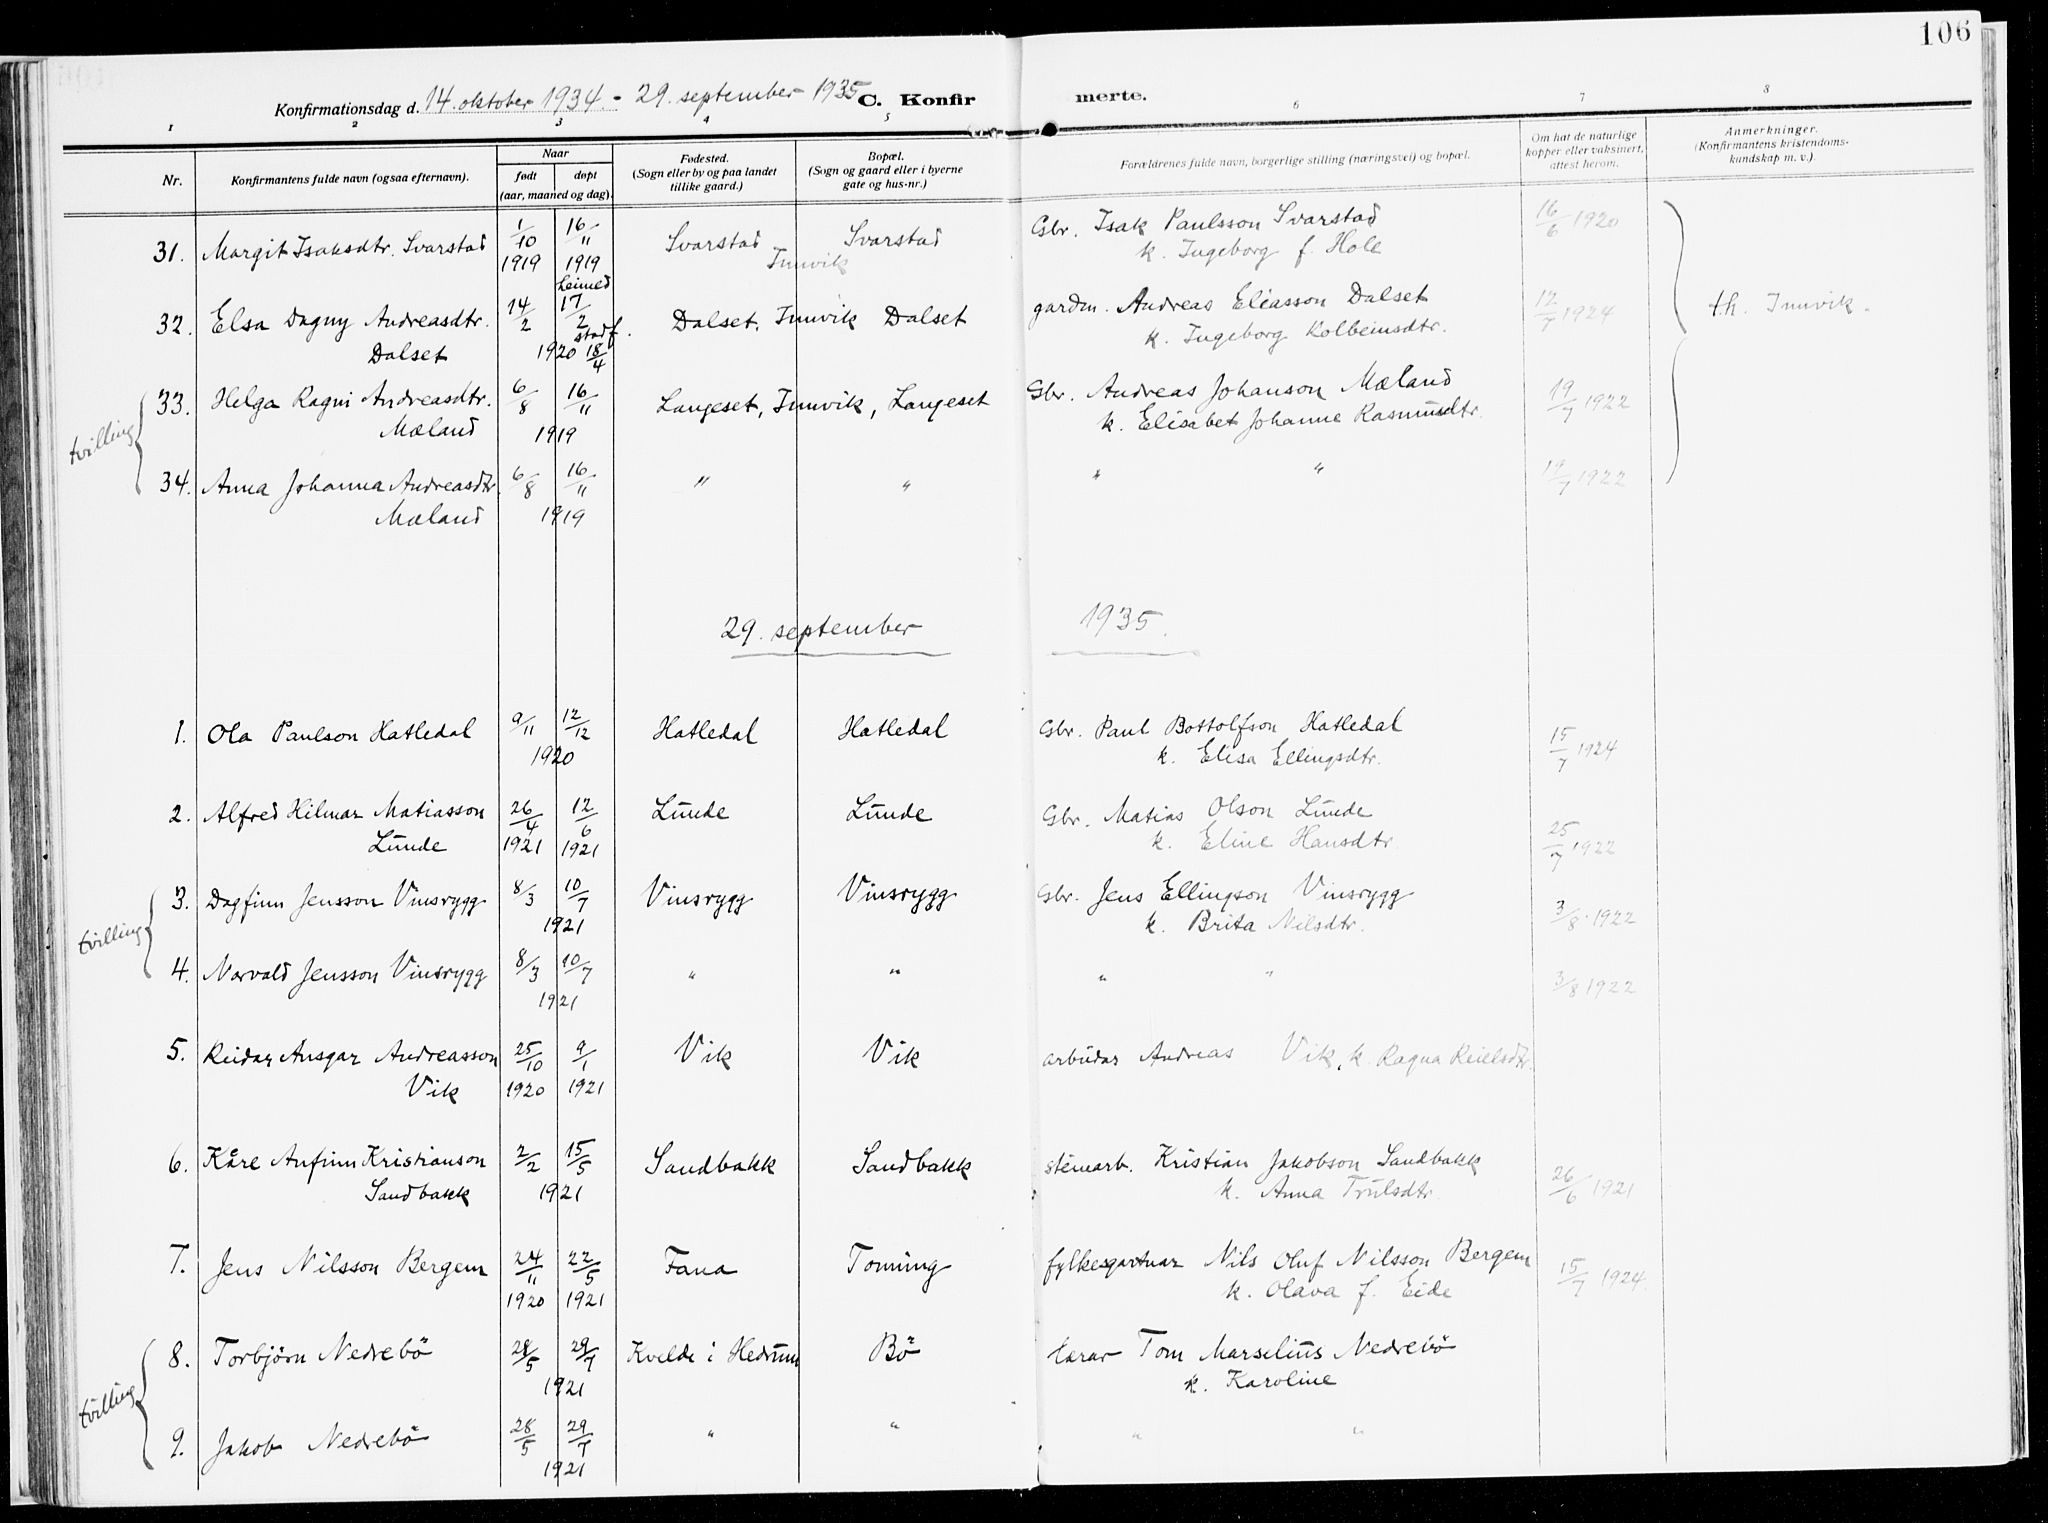 106
Konfirmationsdag d. 14. oktober 1934. - 29. september 1935 C. Konfirmerte.
1 2 3 4 5 6 7 8
Nr.
Konfirmantens fulde navn (ogsaa efternavn).
Naar
født døpt
(aar, maaned og dag).
Fødested.
(Sogn eller by og paa landet
tillike gaard.)
Bopæl.
(Sogn og gaard eller i byerne
gate og hus-nr.)
Forældrenes fulde navn, borgerlige stilling (næringsvei) og bopæl.
Om hat de naturlige
kopper eller vaksinert,
attest herom.
Anmerkninger.
(Konfirmantens kristendoms-
kundskap m. v.).
31. Margit Isaksdtr. Svarstad 1/10 1919 16/11 1919 Svarstad Innvik Svarstad Gbr. Isak Paulsson Svarstad 16/6 1920
k. Ingeborg f. Hole
32. Elsa Dagny Andreasdtr. 14/2 heimed 17/2 Dalset, Innvik Dalset gardm. Andreas Eliasson Dalset 12/7 1924 th. Innvik.
Dalset 1920 stadf. 18/4 k. Ingeborg Kolbeinsdtr.
tvilling
33. Helga Ragni Andreasdtr. 6/8 16/11 Langeset, Innvik, Langeset Gbr. Andreas Johanson Mæland 19/7 1922
Mæland 1919 k. Elisabet Johanne Rasmusdtr.
34. Anna Johanna Andreasdtr. 6/8 16/11 " " " " 19/7 1922
Mæland 1919
29. september 1935.
1. Ola Paulson Hatledal 9/11 12/12 Hatledal Hatledal Gbr. Paul Bottolfson Hatledal 15/7 1924
1920 k. Elisa Ellingsdtr.
2. Alfred Hilmar Matiasson 26/4 12/6 Lunde Lunde Gbr. Matias Olson Lunde 25/7 1922
Lunde 1921 1921 k. Eline Hansdtr.
tvilling
3. Dagfinn Jensson Vinsrygg 8/3 10/7 Vinsrygg Vinsrygg Gbr. Jens Ellingson Vinsrygg 3/8 1922
1921 k. Brita Nilsdtr.
4. Norvald Jensson Vinsrygg 8/3 10/7 " " " " 3/8 1922
1921
5. Reidar Ansgar Andreasson 25/10 9/1 Vik Vik arbeidar Andreas Vik, k. Ragna Reielsdtr.
Vik 1920 1921
6. Kåre Anfinn Kristianson 2/2 15/5 Sandbakk Sandbakk steinarb. Kristian Jakobson Sandbakk 26/6 1921
Sandbakk 1921 k. Anna Trulsdtr.
7. Jens Nilsson Bergem 24/11 22/5 Fana Tonning fylkesgartnar Nils Oluf Nilsson Bergem 15/7 1924.
1920 1921 k. Olava f. Eide
tvilling
8. Torbjörn Nedrebö 28/5 29/7 Kvelde i Hedrum Bö lærar Tom Marselius Nedrebö
1921 k. Karoline
9. Jakob Nedrebö 28/5 29/7 " " " "
1921